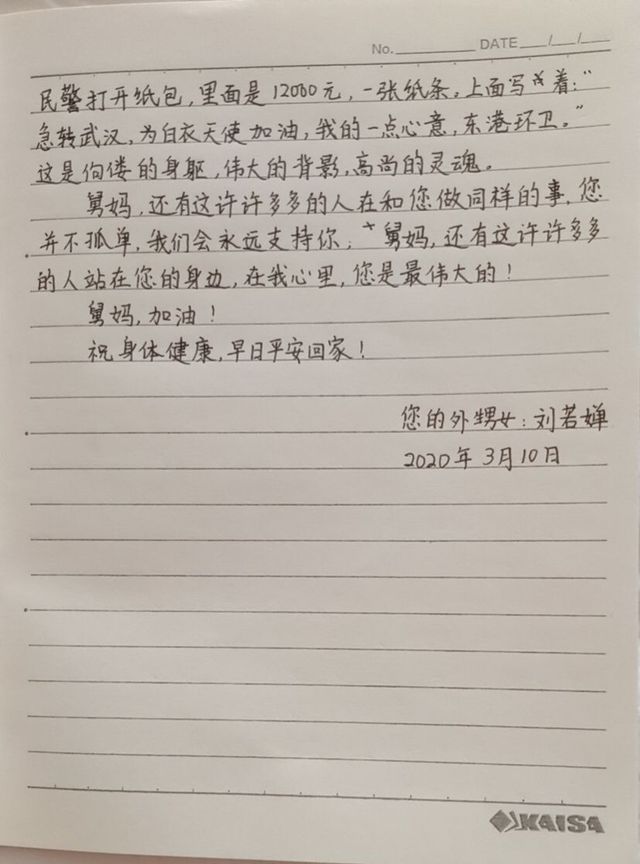 No. DATE / /
民警打开纸包，里面是12000元，一张纸条。上面写着："
急转武汉，为白衣天使加油，我的一点心意，东港环卫。"
这是佝偻的身躯，伟大的背影，高尚的灵魂。
舅妈，还有这许许多多的人在和您做同样的事，您
并不孤单，我们会永远支持你，舅妈，还有这许许多多
的人站在您的身边，在我心里，您是最伟大的！
舅妈，加油！
祝身体健康，早日平安回家！
您的外甥女：刘若婵
2020年3月10日
KAISA